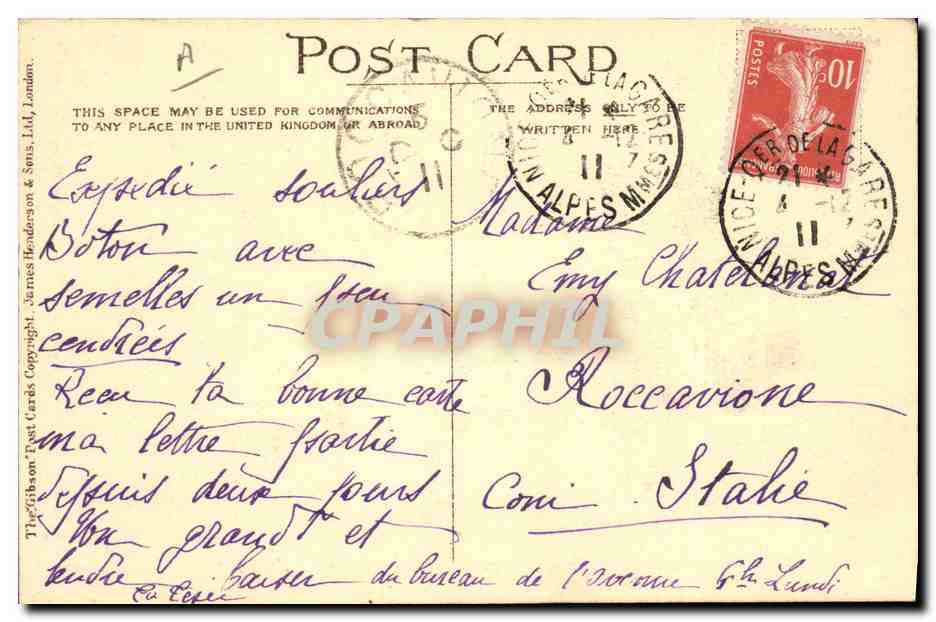 A
POST CARD
THIS SPACE MAY BE USED FOR COMMUNICATIONS
TO ANY PLACE IN THE UNITED KINGDOM OR ABROAD
THE ADDRESS ONLY TO BE
WRITTEN HERE.
The "Gibson" Post Cards Copyright. James Henderson & Sons, Ltd, London.
Expedié souliers
Boton avec
semelles un peu
cendrées
Recu ta bonne carte
ma lettre partie
depuis deux jours
Un grand et
tendre baiser du bureau de 4h Lundi
Madame
Emy
Roccavione
Coni Italie
POSTES
10c
NICE-QER DE LA GARE
21
4 -12
11
ALPES MMES
NICE-QER DE LA GARE
21
4 -12
11
ALPES MMES
11
CPAPHIL